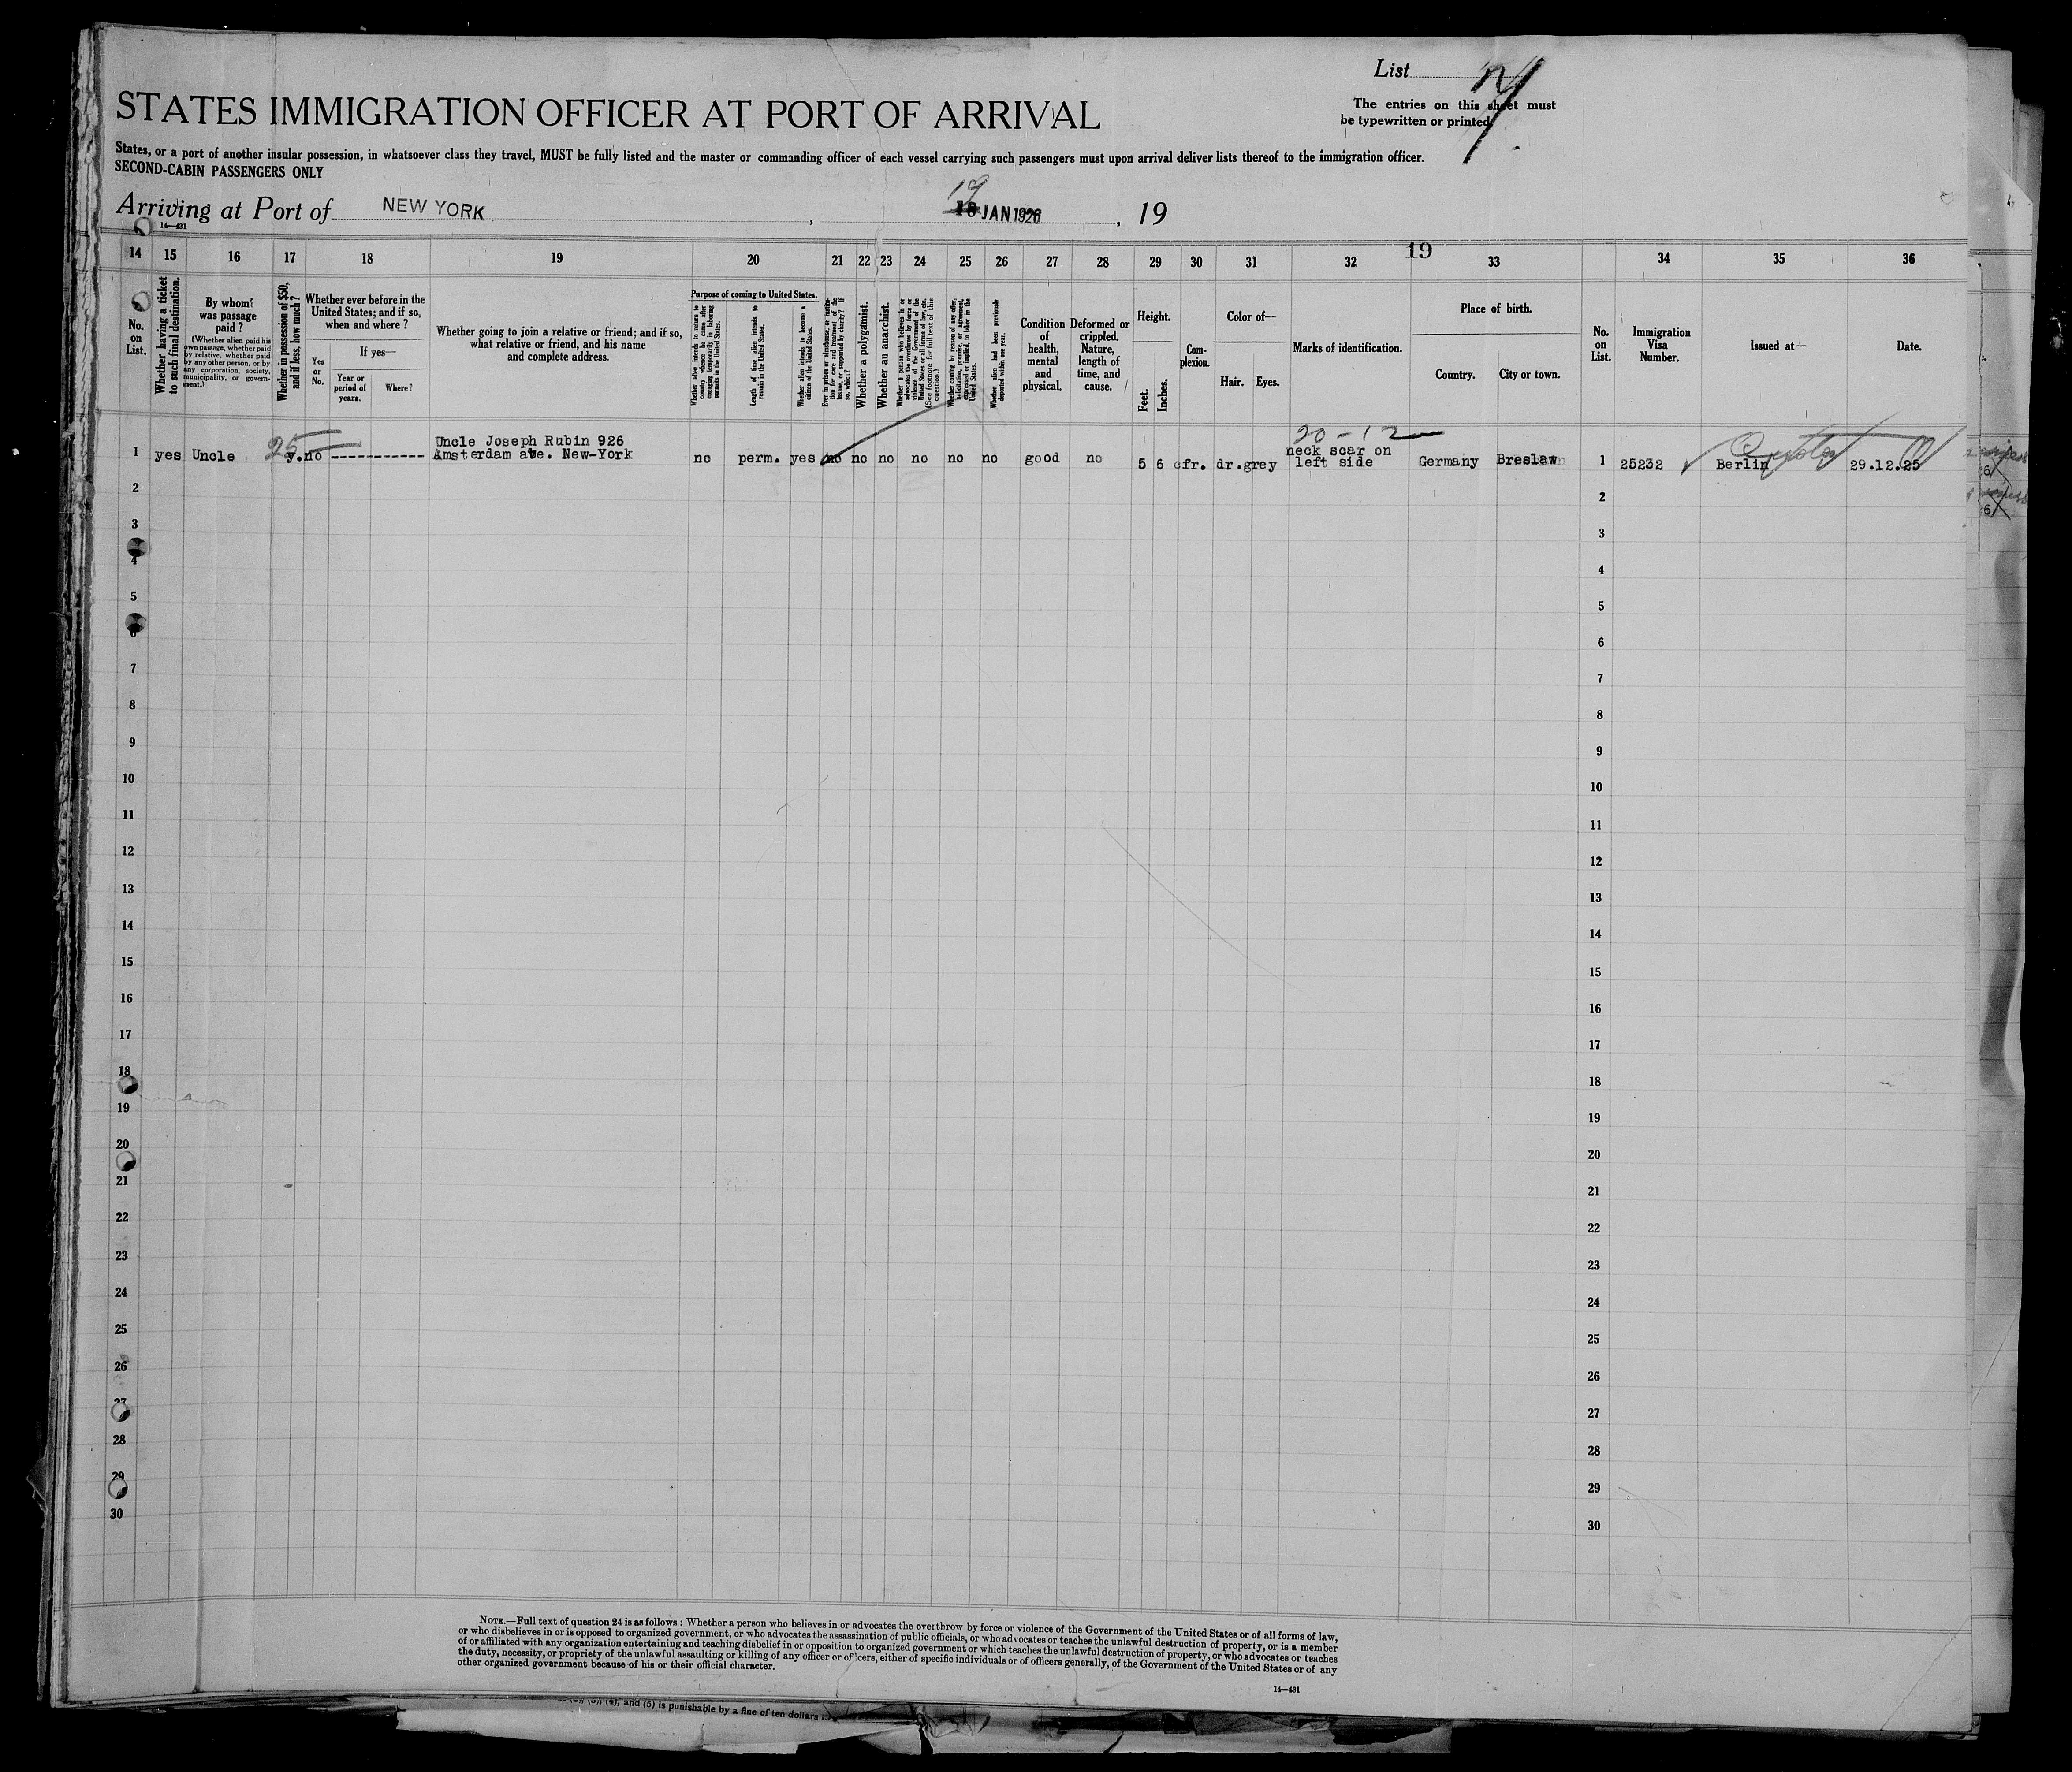 List
The entries on this sheet must
be typewritten or printed.
STATES IMMIGRATION OFFICER AT PORT OF ARRIVAL
States, or a port of another insular possession, in whatsoever class they travel, MUST be fully listed and the master or commanding officer of each vessel carrying such passengers must upon arrival deliver lists thereof to the immigration officer.
SECOND-CABIN PASSENGERS ONLY
Arriving at Port of NEW YORK, 19 18 JAN 1926, 19
14—431
19
14 15 16 17 18 19 20 21 22 23 24 25 26 27 28 29 30 31 32 33 34 35 36
No. on List.
Whether having a ticket to such final destination.
By whom was passage paid?
(Whether alien paid his own passage, whether paid by relative, whether paid by any other person, or by any corporation, society, municipality, or government.)
Whether in possession of $50, and if less, how much?
Whether ever before in the United States; and if so, when and where?
Yes or No.
If yes—
Year or period of years.
Where?
Whether going to join a relative or friend; and if so, what relative or friend, and his name and complete address.
Purpose of coming to United States.
Whether alien intends to return to country whence he came after engaging temporarily in laboring pursuits in the United States.
Length of time alien intends to remain in the United States.
Whether alien intends to become a citizen of the United States.
Ever in prison or almshouse, or institution for care and treatment of the insane, or supported by charity? If so, which?
Whether a polygamist.
Whether an anarchist.
Whether a person who believes in or advocates the overthrow by force or violence of the Government of the United States or all forms of law, etc. (See footnote for full text of this question.)
Whether coming by reason of any offer, solicitation, promise, or agreement, expressed or implied, to labor in the United States.
Whether alien had been previously deported within one year.
Condition of health, mental and physical.
Deformed or crippled. Nature, length of time, and cause.
Height.
Feet. Inches.
Complexion.
Color of—
Hair. Eyes.
Marks of identification.
Place of birth.
Country. City or town.
No. on List.
Immigration Visa Number.
Issued at—
Date.
20-12
1 yes Uncle 25 y. no ------------ Uncle Joseph Rubin 926
Amsterdam ave. New-York no perm. yes no no no no no no good no 5 6 fr. dr. grey neck scar on
left side Germany Breslaw 1 25232 Berlin 29.12.25
2 2
3 3
4 4
5 5
6 6
7 7
8 8
9 9
10 10
11 11
12 12
13 13
14 14
15 15
16 16
17 17
18 18
19 19
20 20
21 21
22 22
23 23
24 24
25 25
26 26
27 27
28 28
29 29
30 30
NOTE.—Full text of question 24 is as follows: Whether a person who believes in or advocates the overthrow by force or violence of the Government of the United States or of all forms of law,
or who disbelieves in or is opposed to organized government, or who advocates the assassination of public officials, or who advocates or teaches the unlawful destruction of property, or is a member
of or affiliated with any organization entertaining and teaching disbelief in or opposition to organized government or which teaches the unlawful destruction of property, or who advocates or teaches
the duty, necessity, or propriety of the unlawful assaulting or killing of any officer or officers, either of specific individuals or of officers generally, of the Government of the United States or of any
other organized government because of his or their official character.
14—431
(4), and (5) is punishable by a fine of ten dollars